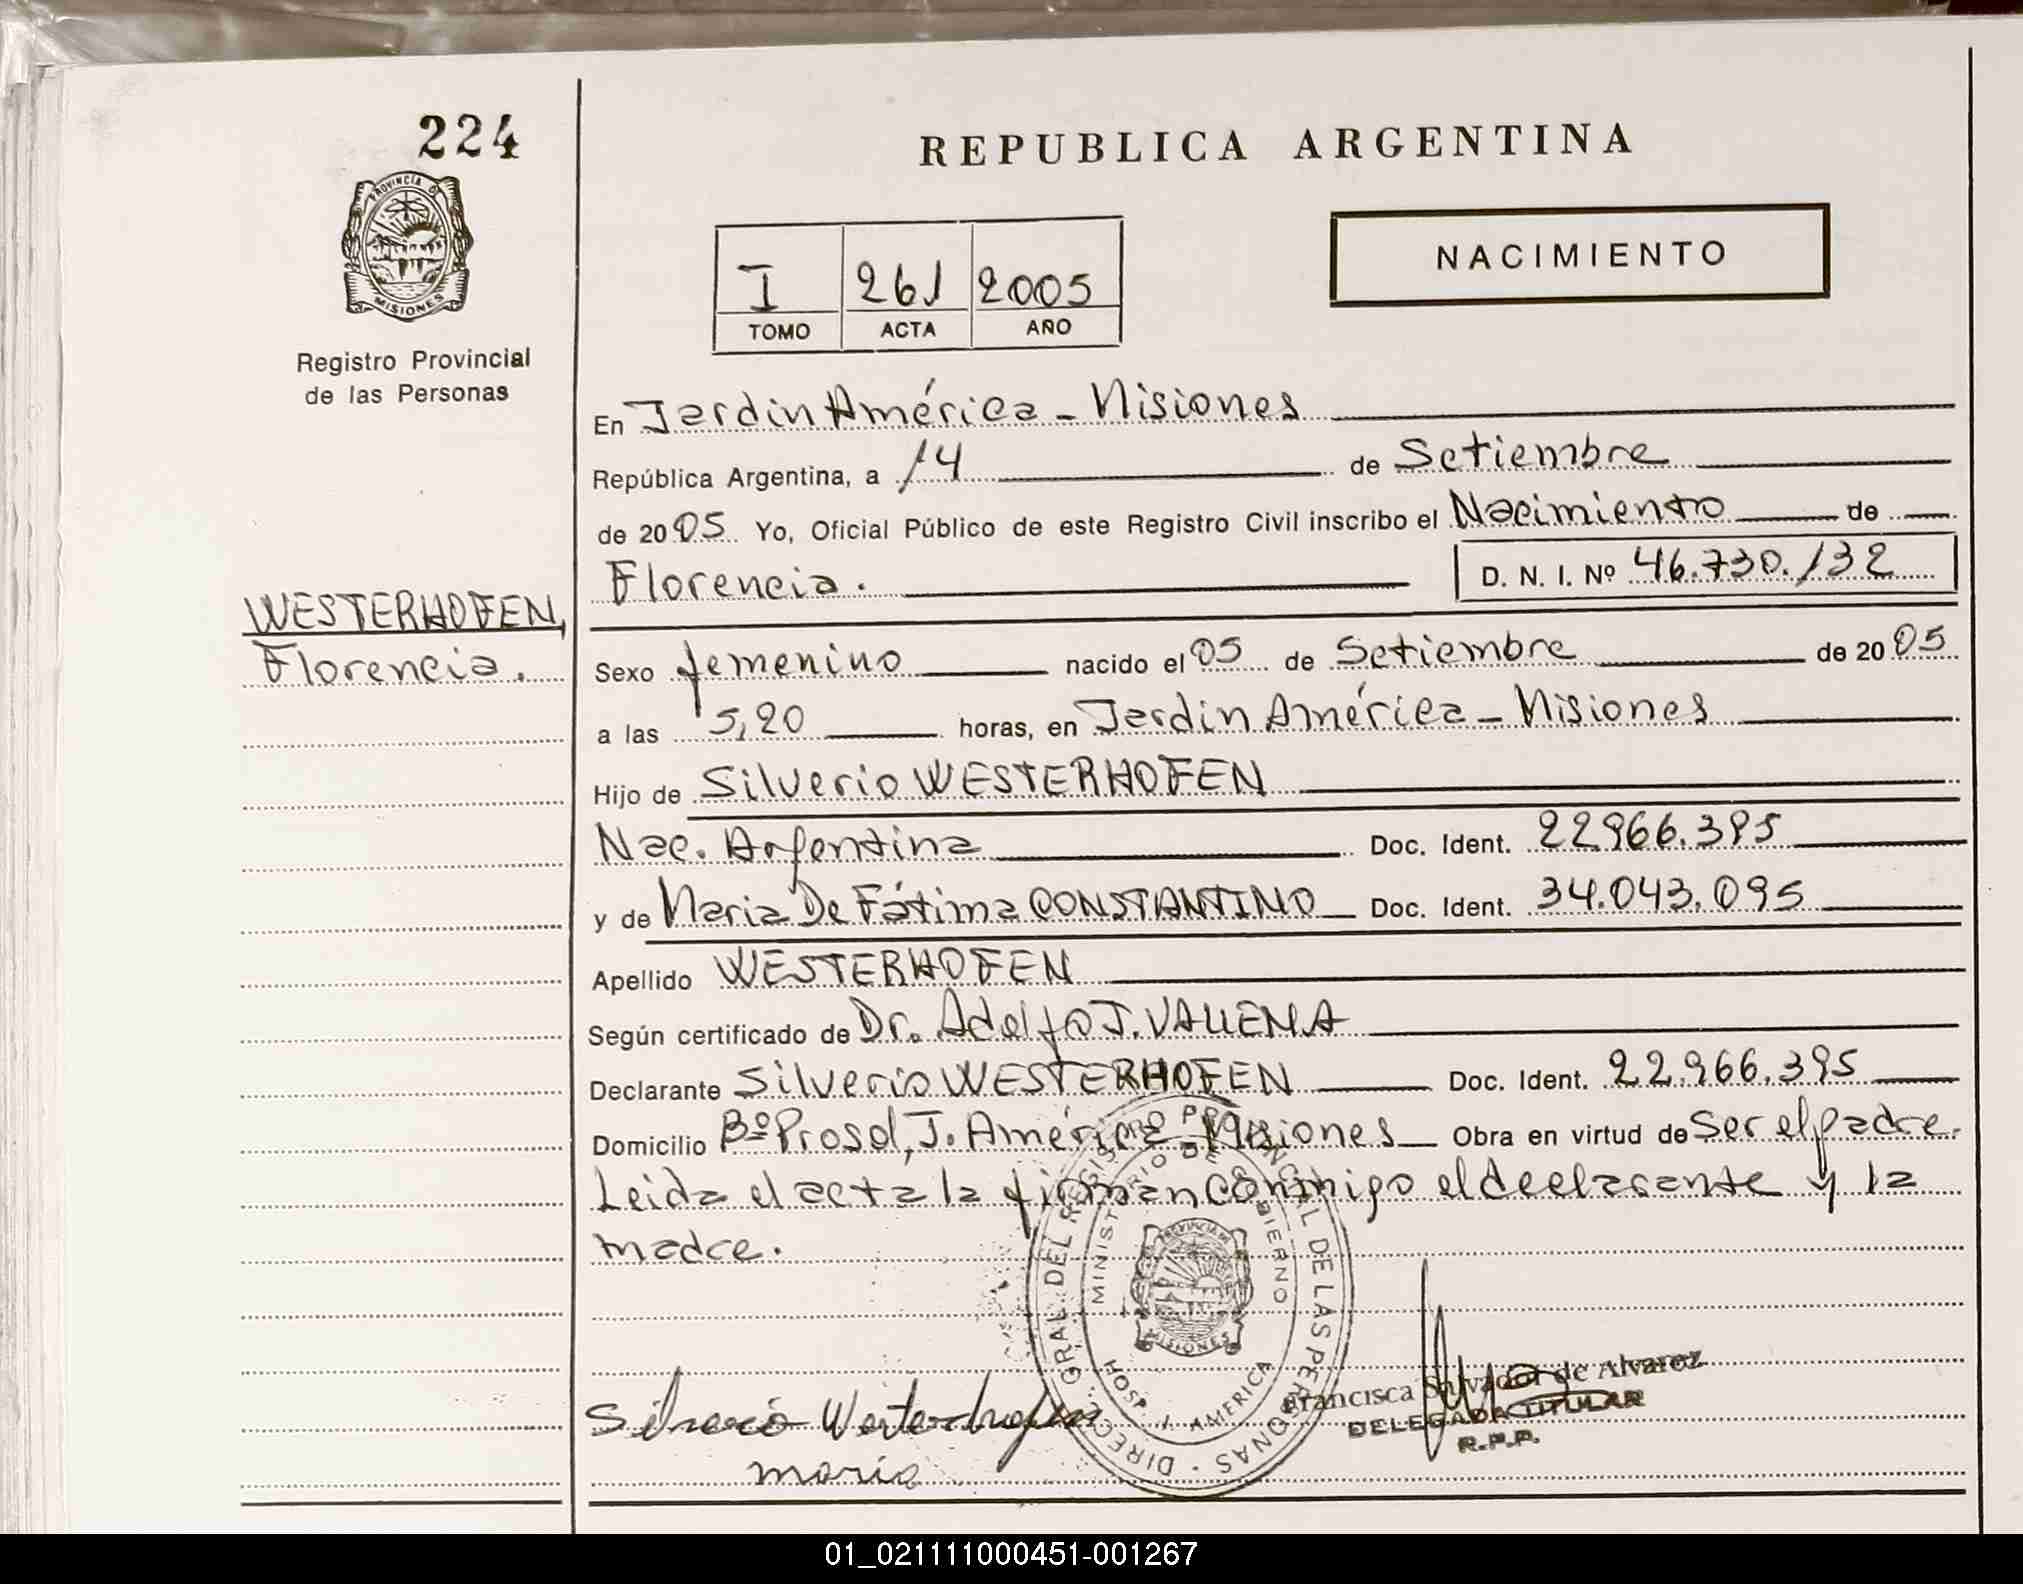 224
REPUBLICA ARGENTINA
PROVINCIA DE
MISIONES
Registro Provincial
de las Personas
I 261 2005
TOMO ACTA AÑO
NACIMIENTO
En Jardin América - Misiones
República Argentina, a 14 de Setiembre
de 2005 Yo, Oficial Público de este Registro Civil inscribo el Nacimiento de
Florencia. D. N. I. Nº 46.730.132
WESTERHOFEN,
Florencia.
Sexo femenino nacido el 05 de Setiembre de 2005
a las 5,20 horas, en Jardin América - Misiones
Hijo de Silverio WESTERHOFEN
Nac. Argentina Doc. Ident. 22.966.395
y de Maria De Fátima CONSTANTINO Doc. Ident. 34.043.095
Apellido WESTERHOFEN
Según certificado de Dr. Adolfo J.
Declarante Silverio WESTERHOFEN Doc. Ident. 22.966.395
Domicilio Bº Prosol, J. América - Misiones Obra en virtud de Ser el padre.
Leida el acta la firman conmigo el declarante y la
madre.
DIRECC. GRAL. DEL REGISTRO PROVINCIAL DE LAS PERSONAS
MINISTERIO DE GOBIERNO
MISIONES
HOSP. J. AMERICA
Silverio Westerhofen
maria
Francisca Salvador de Alvarez
DELEGADA TITULAR
R.P.P.
01_021111000451-001267